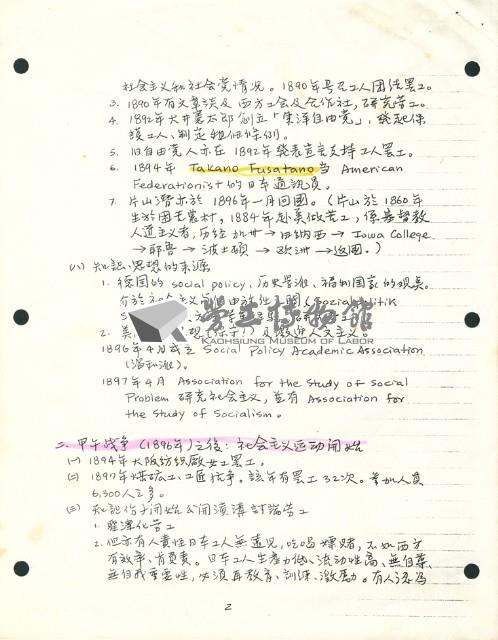 社会主义和社会党情况。1890年号召工人团结罢工。
3. 1890年有文章谈及西方工会及合作社，研究劳工。
4. 1892年大井憲太郎创立「東洋自由党」，發起保
護工人、制定组佃条例。
5. 旧自由党人亦在1892年發表宣言支持工人罢工。
6. 1894年 Takano Fusatano 当 American
Federationist 的日本通訊员。
7. 片山潛亦於1896年一月回國。(片山於1860年
生於困苦農村，1884年赴美做苦工，係基督教
人道主义者，历经加州→田纳西→Iowa College
→耶鲁→波士頓→欧洲→返國。)
(八) 知識、思想的来源
1. 德国的 social policy、历史学派、福利國家的观莫。
介於社会主义 自由放任 間 (Sozialpolitik
2. 美 及 人文主义。
1896年4月成立 Social Policy Academic Association
(温和派)。
1897年4月 Association for the Study of Social
Problem 研究社会主义，並有 Association for
the Study of Socialism。
勞工博物館
KAOHSIUNG MUSEUM OF LABOR
二. 甲午战争(1896年)之後：社会主义运动开始
(一) 1894年大阪纺织厰女工罢工。
(二) 1897年煤矿工、工匠抗争。該年有罢工32次。参加人员
6,300人之多。
(三) 知識份子开始公开演講討論劳工
1. 雄淨化劳工
2. 但亦有人责怪日本工人無遠见，吃喝嫖赌，不如西方
有效率、肯負责。日本工人生產力低、流动性高、無自尊、
無自我重要性，必须再教育、訓練、激励。有人认為
2